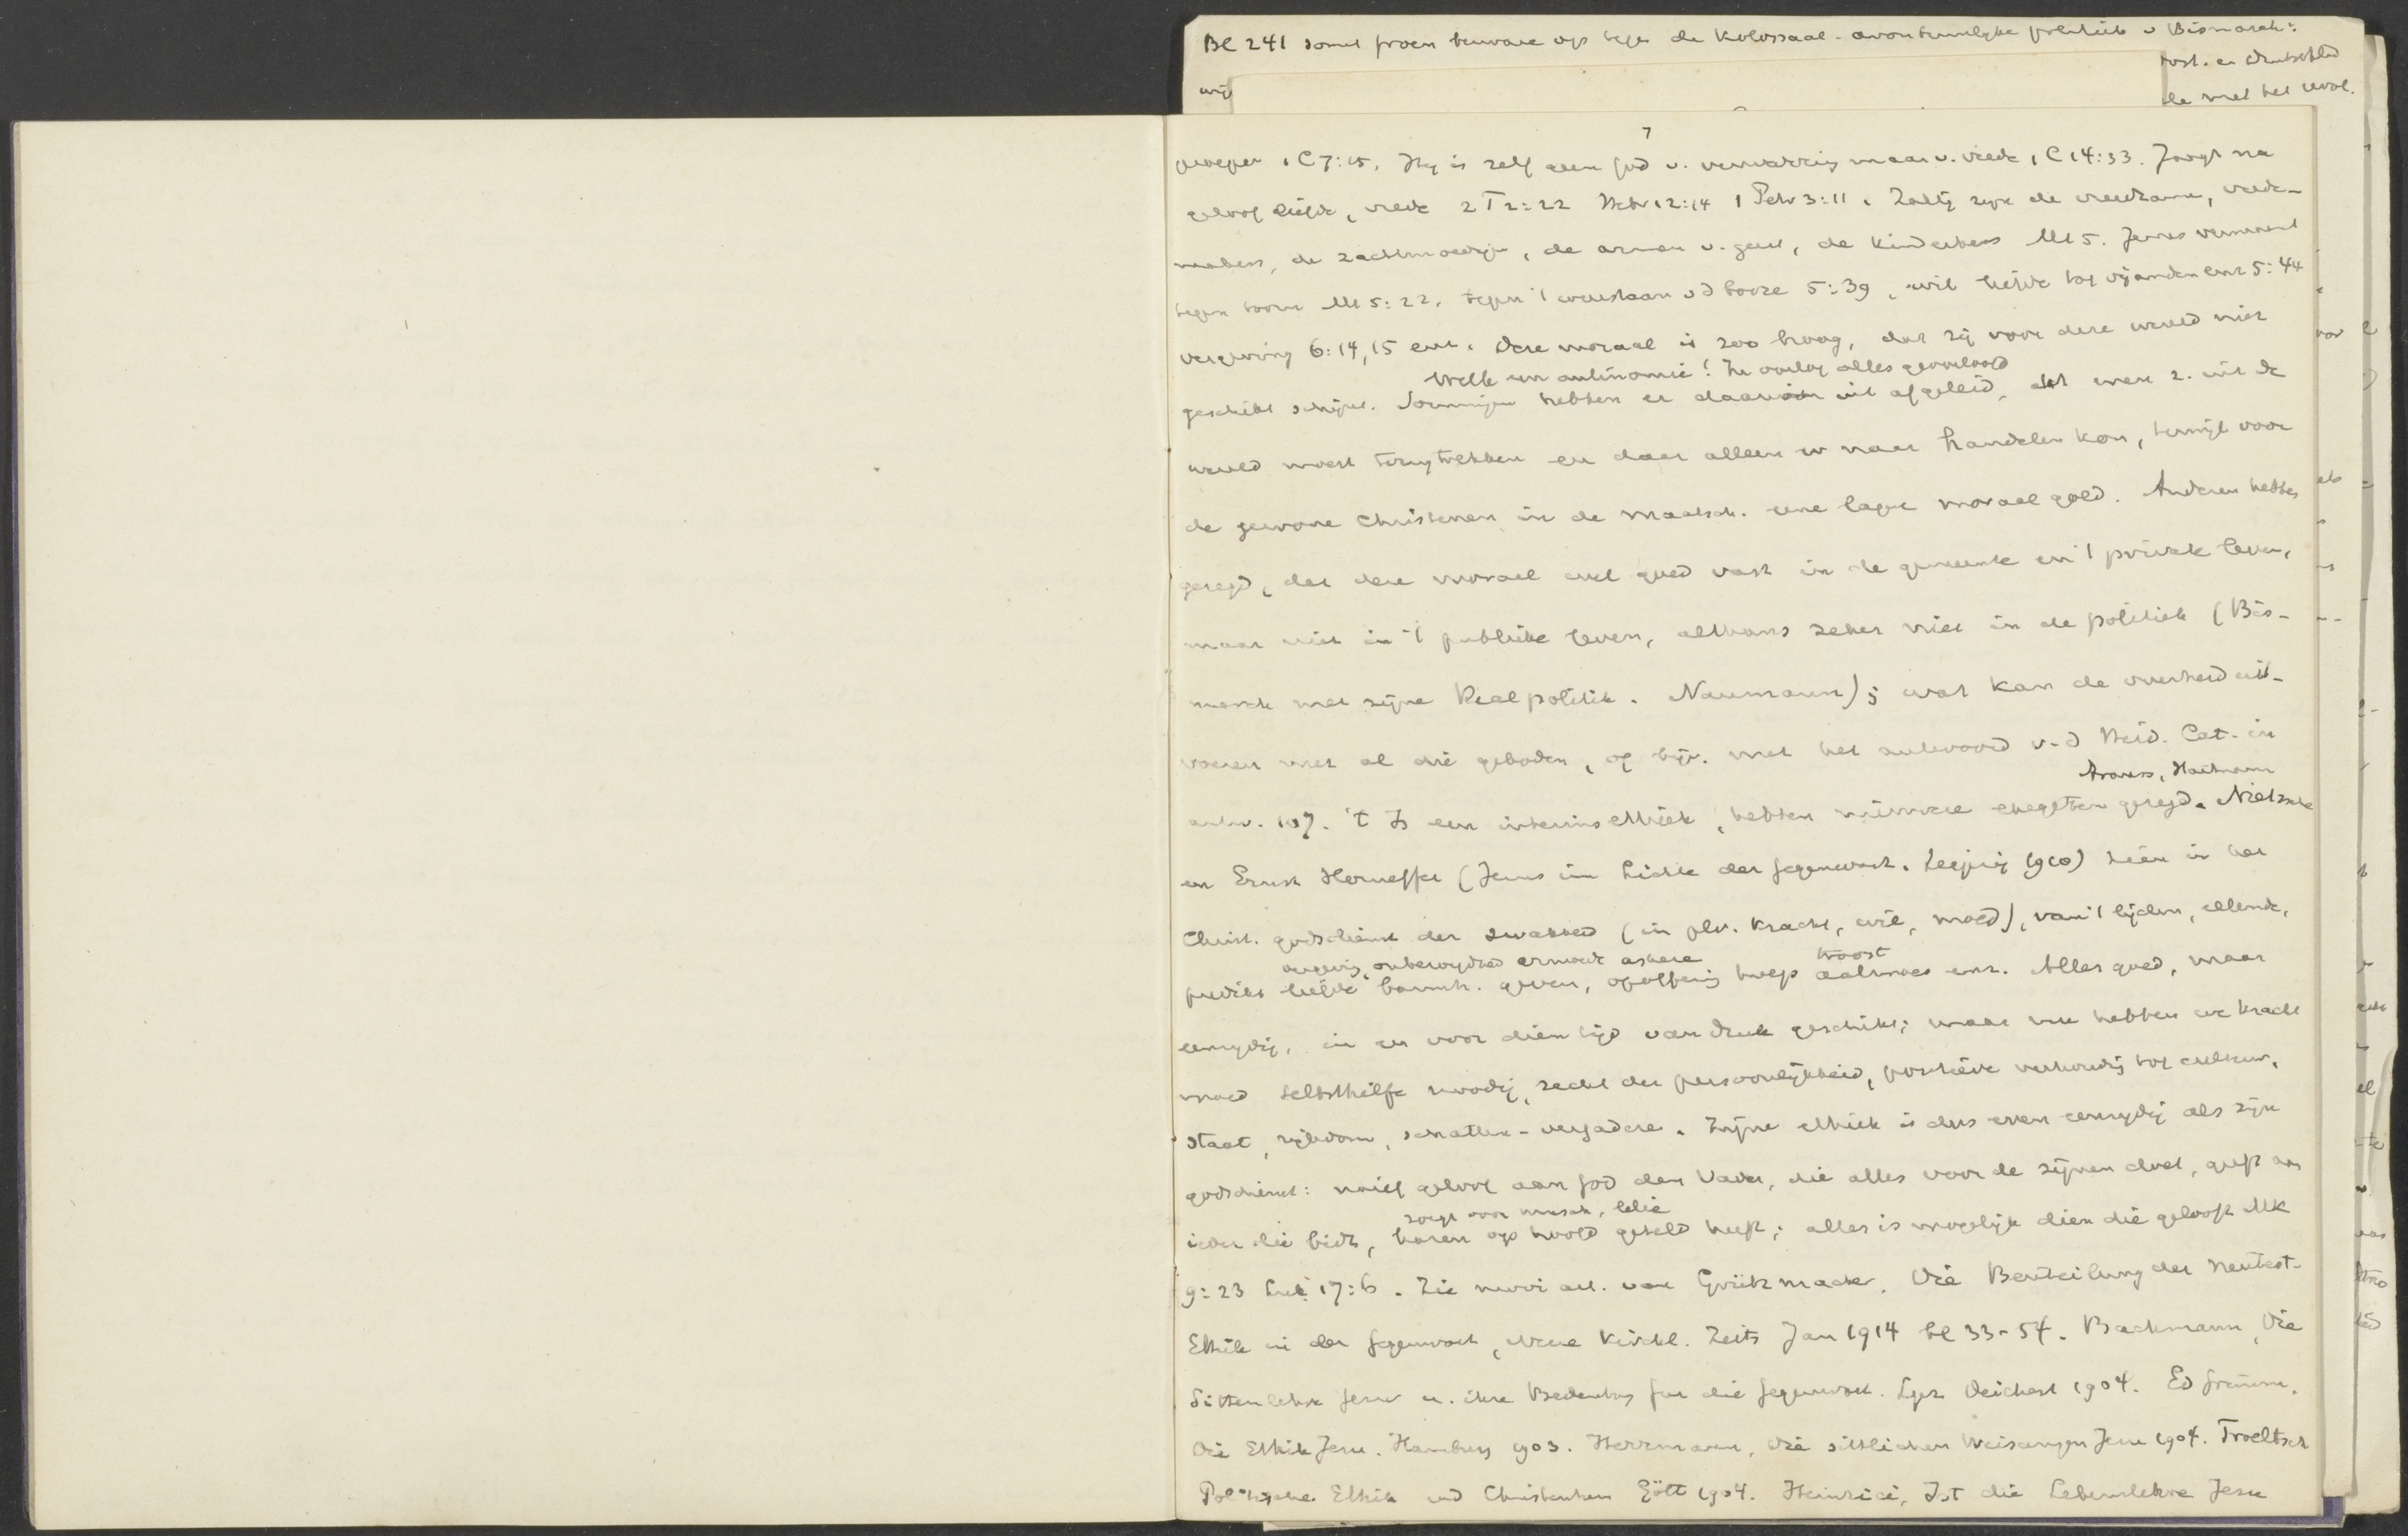 Bl 241 somt groen bezwaren op tegen de kolossaal-avontuurlyke politiek v Bismarck:
oost. en Duitschld
wij
de met het revol.
7
geroepen 1 C 7:15. Hij is zelf geen God v. verwarring maar v. vrede, 1 C 14:33. Jaagt na
geloof liefde, vrede 2 T 2:22 Hebr 12:14 1 Petr 3:11. Zalig zijn de vreedzame, vrede-
makers, de zachtmoedige, de armen v. geest, de kinderkens Mt 5. Jezus vermaant
tegen toorn Mt 5:22. tegen 't weerstaan v d booze 5:39, wil liefde tot vijanden enz 5:44
vergeving 6:14,15 enz. Deze moraal is zoo hoog, dat zij voor deze wereld niet
Welk een antinomie! In oorlog alles geoorloofd
geschikt schijnt. Sommigen hebben er daarom uit afgeleid, dat men z. uit de
wereld moest terugtrekken en daar alleen er naar handelen kon, terwijl voor
de gewone Christenen in de maatsch. eene lagere moraal gold. Anderen hebben
gezegd, dat deze moraal wel goed was in de gemeente en 't private leven,
maar niet in 't publieke leven, althans zeker niet in de politiek (Bis-
marck met zijne Realpolitik. Naumann); wat kan de overheid uit-
voeren met al die geboden, of bijv. met het antwoord v. d Heid. Cat. in
antw. 107. 't Is een interimsethiek, hebben nieuwere exegeten gezegd. Nietzsche
Hartmann
en Ernst Horneffer (Jesus im Lichte der Gegenwart. Leipzig 1910) zien in het
Christ. godsdienst der zwakheid (in plv. kracht, wil, moed), van 't lijden, ellende,
vergeving, onbezorgdheid armoede ascese
troost
predikt liefde barmh. geven, opoffering hulp aalmoes enz. Alles goed, maar
eenzydig, in en voor dien tijd van druk geschikt; maar nu hebben we kracht
moed Selbsthilfe noodig, recht der persoonlijkheid, positieve verhouding tot cultuur,
staat, rijkdom, schatten-vergadere. Zijne ethiek is dus even eenzydig als zijn
godsdienst: naief geloof aan God den Vader, die alles voor de zijnen doet, geeft aan
zorgt voor musch, lelie
ieder die bidt, haren op hoofd geteld heeft; alles is mogelijk dien die gelooft Mk
9:23 Luk 17:6. Zie mooi art. van Grützmacher, Die Beurteilung der neutest-
Ethik in der Gegenwart, Neue Kirchl. Zeits Jan 1914 bl 33-54. Bachmann, Die
Sittenlehre Jesu u. ihre Bedeutung für die Gegenwart. Lpz. Deichert 1904. Ed Grimm.
Die Ethik Jesu. Hamburg 1903. Herrmann, Die sittlichen Weisungen Jesu 1904. Troeltsch
Politische Ethik und Christentum Gött 1904. Heinrici, Ist die Lebenslehre Jesu